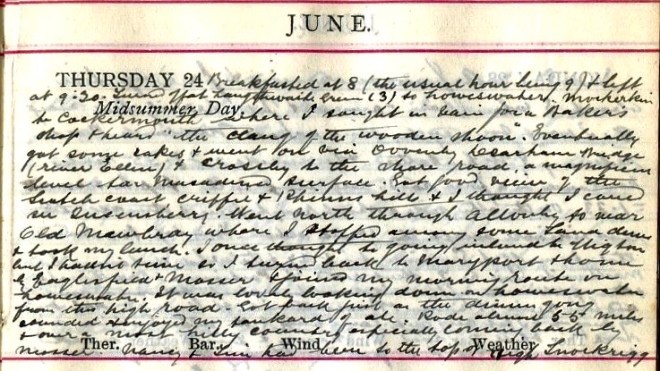 JUNE.
THURSDAY 24 Breakfasted at 8 (the usual hour being 9) & left
at 9.30. Turned off at (3) to Loweswater, Mockerkin
Midsummer Day
to Cockermouth where I sought in vain for a Baker's
shop & heard "the clang of the wooden shoon. Eventually
got some cakes & went on via Ovenby Dearham Bridge
(river Ellen) & Crosby to the shore road, a magnificent
level tar macadam surface. Got good view of the
Scotch coast Criffel & hills & I thought I could
see Went north through Allonby to near
Old Mawbray where I stopped among some sand dunes
& took my lunch. I once thought to going inland to
but I hadn't time so I turned back to Maryport & home
by Eaglesfield & Mosser & joined my morning route on
Loweswater. It was lovely looking down on Loweswater
from this high road. Got back just as the dinner gong
sounded & enjoyed my tankard of ale. Rode almost 55 miles
& over hilly country especially coming back by
Ther. Bar. Wind Weather
Mosser. Nancy & had been to the top of High Snockrigg